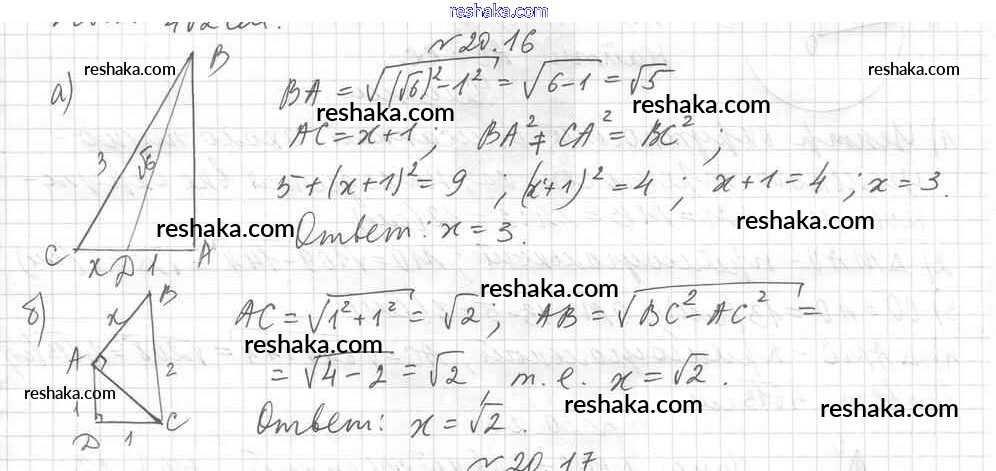 reshaka.com
4√2 см.
№20.16
а) B 3 √6 C x D 1 A
BA = √((√6)² - 1²) = √(6-1) = √5
AC = x+1; BA² + CA² = BC²;
5+(x+1)² = 9; (x+1)² = 4; x+1 = 4; x = 3.
Ответ: x = 3.
б) B x A 2 1 D 1 C
AC = √(1²+1²) = √2; AB = √(BC² - AC²) =
= √(4-2) = √2, т.е. x = √2.
Ответ: x = √2.
№20.17
reshaka.com
reshaka.com
reshaka.com
reshaka.com
reshaka.com
reshaka.com
reshaka.com
reshaka.com
reshaka.com
reshaka.com
reshaka.com